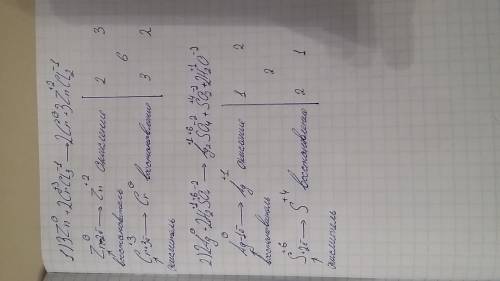 1) 3Zn⁰ + 2Cr⁺³Cl₃⁻¹ → 2Cr⁰ + 3Zn⁺²Cl₂⁻¹
Zn⁰ -2ē → Zn⁺² окисление | 2 | 3
восстановитель 6
Cr⁺³ +3ē → Cr⁰ восстановление | 3 | 2
окислитель
2) 2Ag⁰ + 2H₂⁺¹S⁺⁶O₄⁻² → Ag₂⁺¹S⁺⁶O₄⁻² + S⁺⁴O₂⁻² + 2H₂⁺¹O⁻²
Ag⁰ -1ē → Ag⁺¹ окисление | 1 | 2
восстановитель 2
S⁺⁶ +2ē → S⁺⁴ восстановление | 2 | 1
окислитель